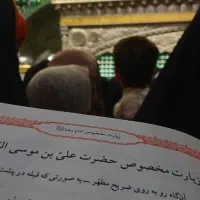 زیارت مخصوص امام رضا
زیارت مخصوص حضرت علیّ بن موسی الر
آنگاه رو به روی ضریح مطهر ـ به صورتی که قبله در پشت